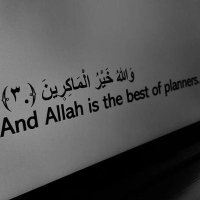 وَاللهُ خَيْرُ الْمَاكِرِينَ ﴿٣٠﴾
And Allah is the best of planners.